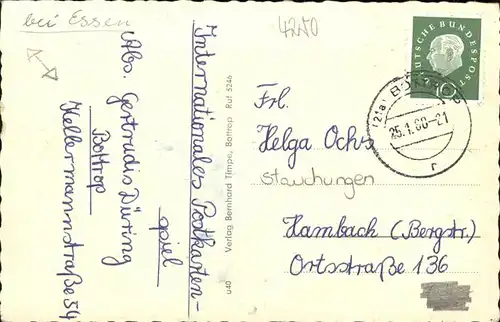 bei Essen
4250
Abs. Gertrudis Düring
Bottrop
Kellermannstraße 54
Internationales Postkarten-
spiel
u40 Verlag Bernhard Timpe, Bottrop Ruf 5246
DEUTSCHE BUNDESPOST
10
(21a) BOTTROP
25.1.60-21
r
Frl.
Helga Ochs
Stauchungen
Hambach (Bergstr.)
Ortsstraße 136